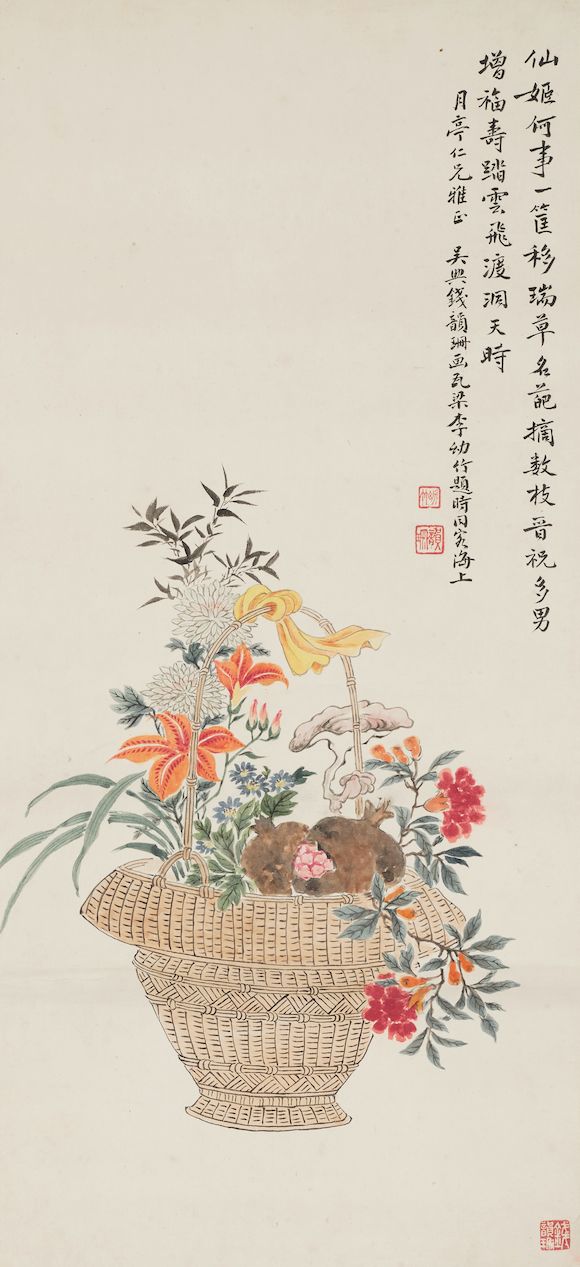 仙姬何事一筐移瑞草名葩摘数枝晋祝多男
增福壽踏雲飛渡洞天時
月亭仁兄雅正 吴興錢韻珊画瓦梁李幼竹題時同客海上
幼竹
韻珊